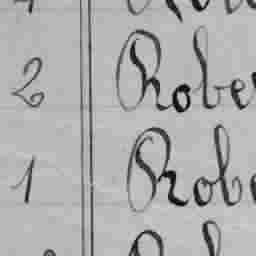 2 Rober
1 Robe